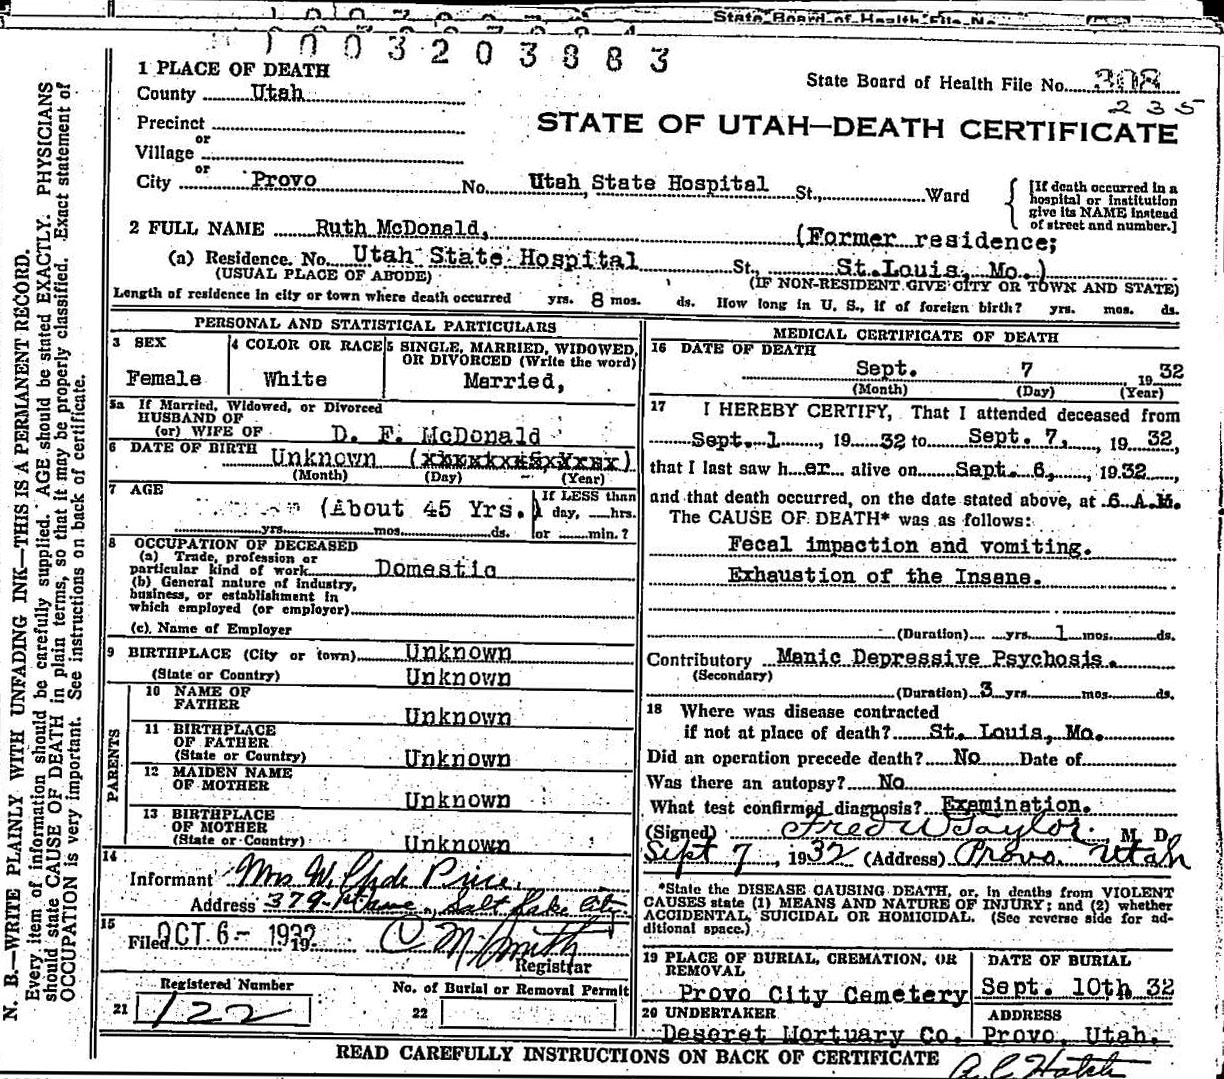 State Board of Health File No.
1003203883
1 PLACE OF DEATH
County Utah
State Board of Health File No. 308
235
Precinct
or
Village
STATE OF UTAH—DEATH CERTIFICATE
or
City Provo No. Utah State Hospital St., Ward
[If death occurred in a hospital or institution give its NAME instead of street and number.]
2 FULL NAME Ruth McDonald, (Former residence;
(a) Residence. No. Utah State Hospital St., St.Louis, Mo.)
(USUAL PLACE OF ABODE) (IF NON-RESIDENT GIVE CITY OR TOWN AND STATE)
Length of residence in city or town where death occurred yrs. 8 mos. ds. How long in U. S., if of foreign birth? yrs. mos. ds.
PERSONAL AND STATISTICAL PARTICULARS
3 SEX
Female
4 COLOR OR RACE
White
5 SINGLE, MARRIED, WIDOWED, OR DIVORCED (Write the word)
Married,
5a If Married, Widowed, or Divorced
HUSBAND OF
(or) WIFE OF D. F. McDonald
6 DATE OF BIRTH Unknown
(Month) (Day) (Year)
7 AGE (About 45 Yrs.)
yrs. mos. ds.
If LESS than
1 day, hrs.
or min.?
8 OCCUPATION OF DECEASED
(a) Trade, profession or
particular kind of work Domestic
(b) General nature of industry,
business, or establishment in
which employed (or employer)
(c) Name of Employer
9 BIRTHPLACE (City or town) Unknown
(State or Country) Unknown
PARENTS
10 NAME OF
FATHER Unknown
11 BIRTHPLACE
OF FATHER
(State or Country) Unknown
12 MAIDEN NAME
OF MOTHER Unknown
13 BIRTHPLACE
OF MOTHER
(State or Country) Unknown
14
Informant Mrs W. Clyde Price.
Address 379 Salt Lake City
15
Filed OCT 6- 1932 19
C M Smith
Registrar
Registered Number
21 122
No. of Burial or Removal Permit
22
MEDICAL CERTIFICATE OF DEATH
16 DATE OF DEATH
Sept. 7 19 32
(Month) (Day) (Year)
17 I HEREBY CERTIFY, That I attended deceased from
Sept. 1, 19 32 to Sept. 7, 19 32,
that I last saw her alive on Sept. 6, 19 32,
and that death occurred, on the date stated above, at 6 A.M.
The CAUSE OF DEATH* was as follows:
Fecal impaction and vomiting.
Exhaustion of the Insane.
(Duration) yrs. 1 mos. ds.
Contributory Manic Depressive Psychosis.
(Secondary)
(Duration) 3 yrs. mos. ds.
18 Where was disease contracted
if not at place of death? St. Louis, Mo.
Did an operation precede death? No Date of
Was there an autopsy? No
What test confirmed diagnosis? Examination.
(Signed) Fred W Taylor. M. D.
Sept 7, 1932 (Address) Provo. Utah
*State the DISEASE CAUSING DEATH, or, in deaths from VIOLENT
CAUSES state (1) MEANS AND NATURE OF INJURY; and (2) whether
ACCIDENTAL, SUICIDAL OR HOMICIDAL. (See reverse side for ad-
ditional space.)
19 PLACE OF BURIAL, CREMATION, OR
REMOVAL
Provo City Cemetery
DATE OF BURIAL
Sept. 10th 32
20 UNDERTAKER
Deseret Mortuary Co.
ADDRESS
Provo, Utah.
READ CAREFULLY INSTRUCTIONS ON BACK OF CERTIFICATE
N. B.—WRITE PLAINLY WITH UNFADING INK—THIS IS A PERMANENT RECORD.
Every item of information should be carefully supplied. AGE should be stated EXACTLY. PHYSICIANS
should state CAUSE OF DEATH in plain terms, so that it may be properly classified. Exact statement of
OCCUPATION is very important. See instructions on back of certificate.